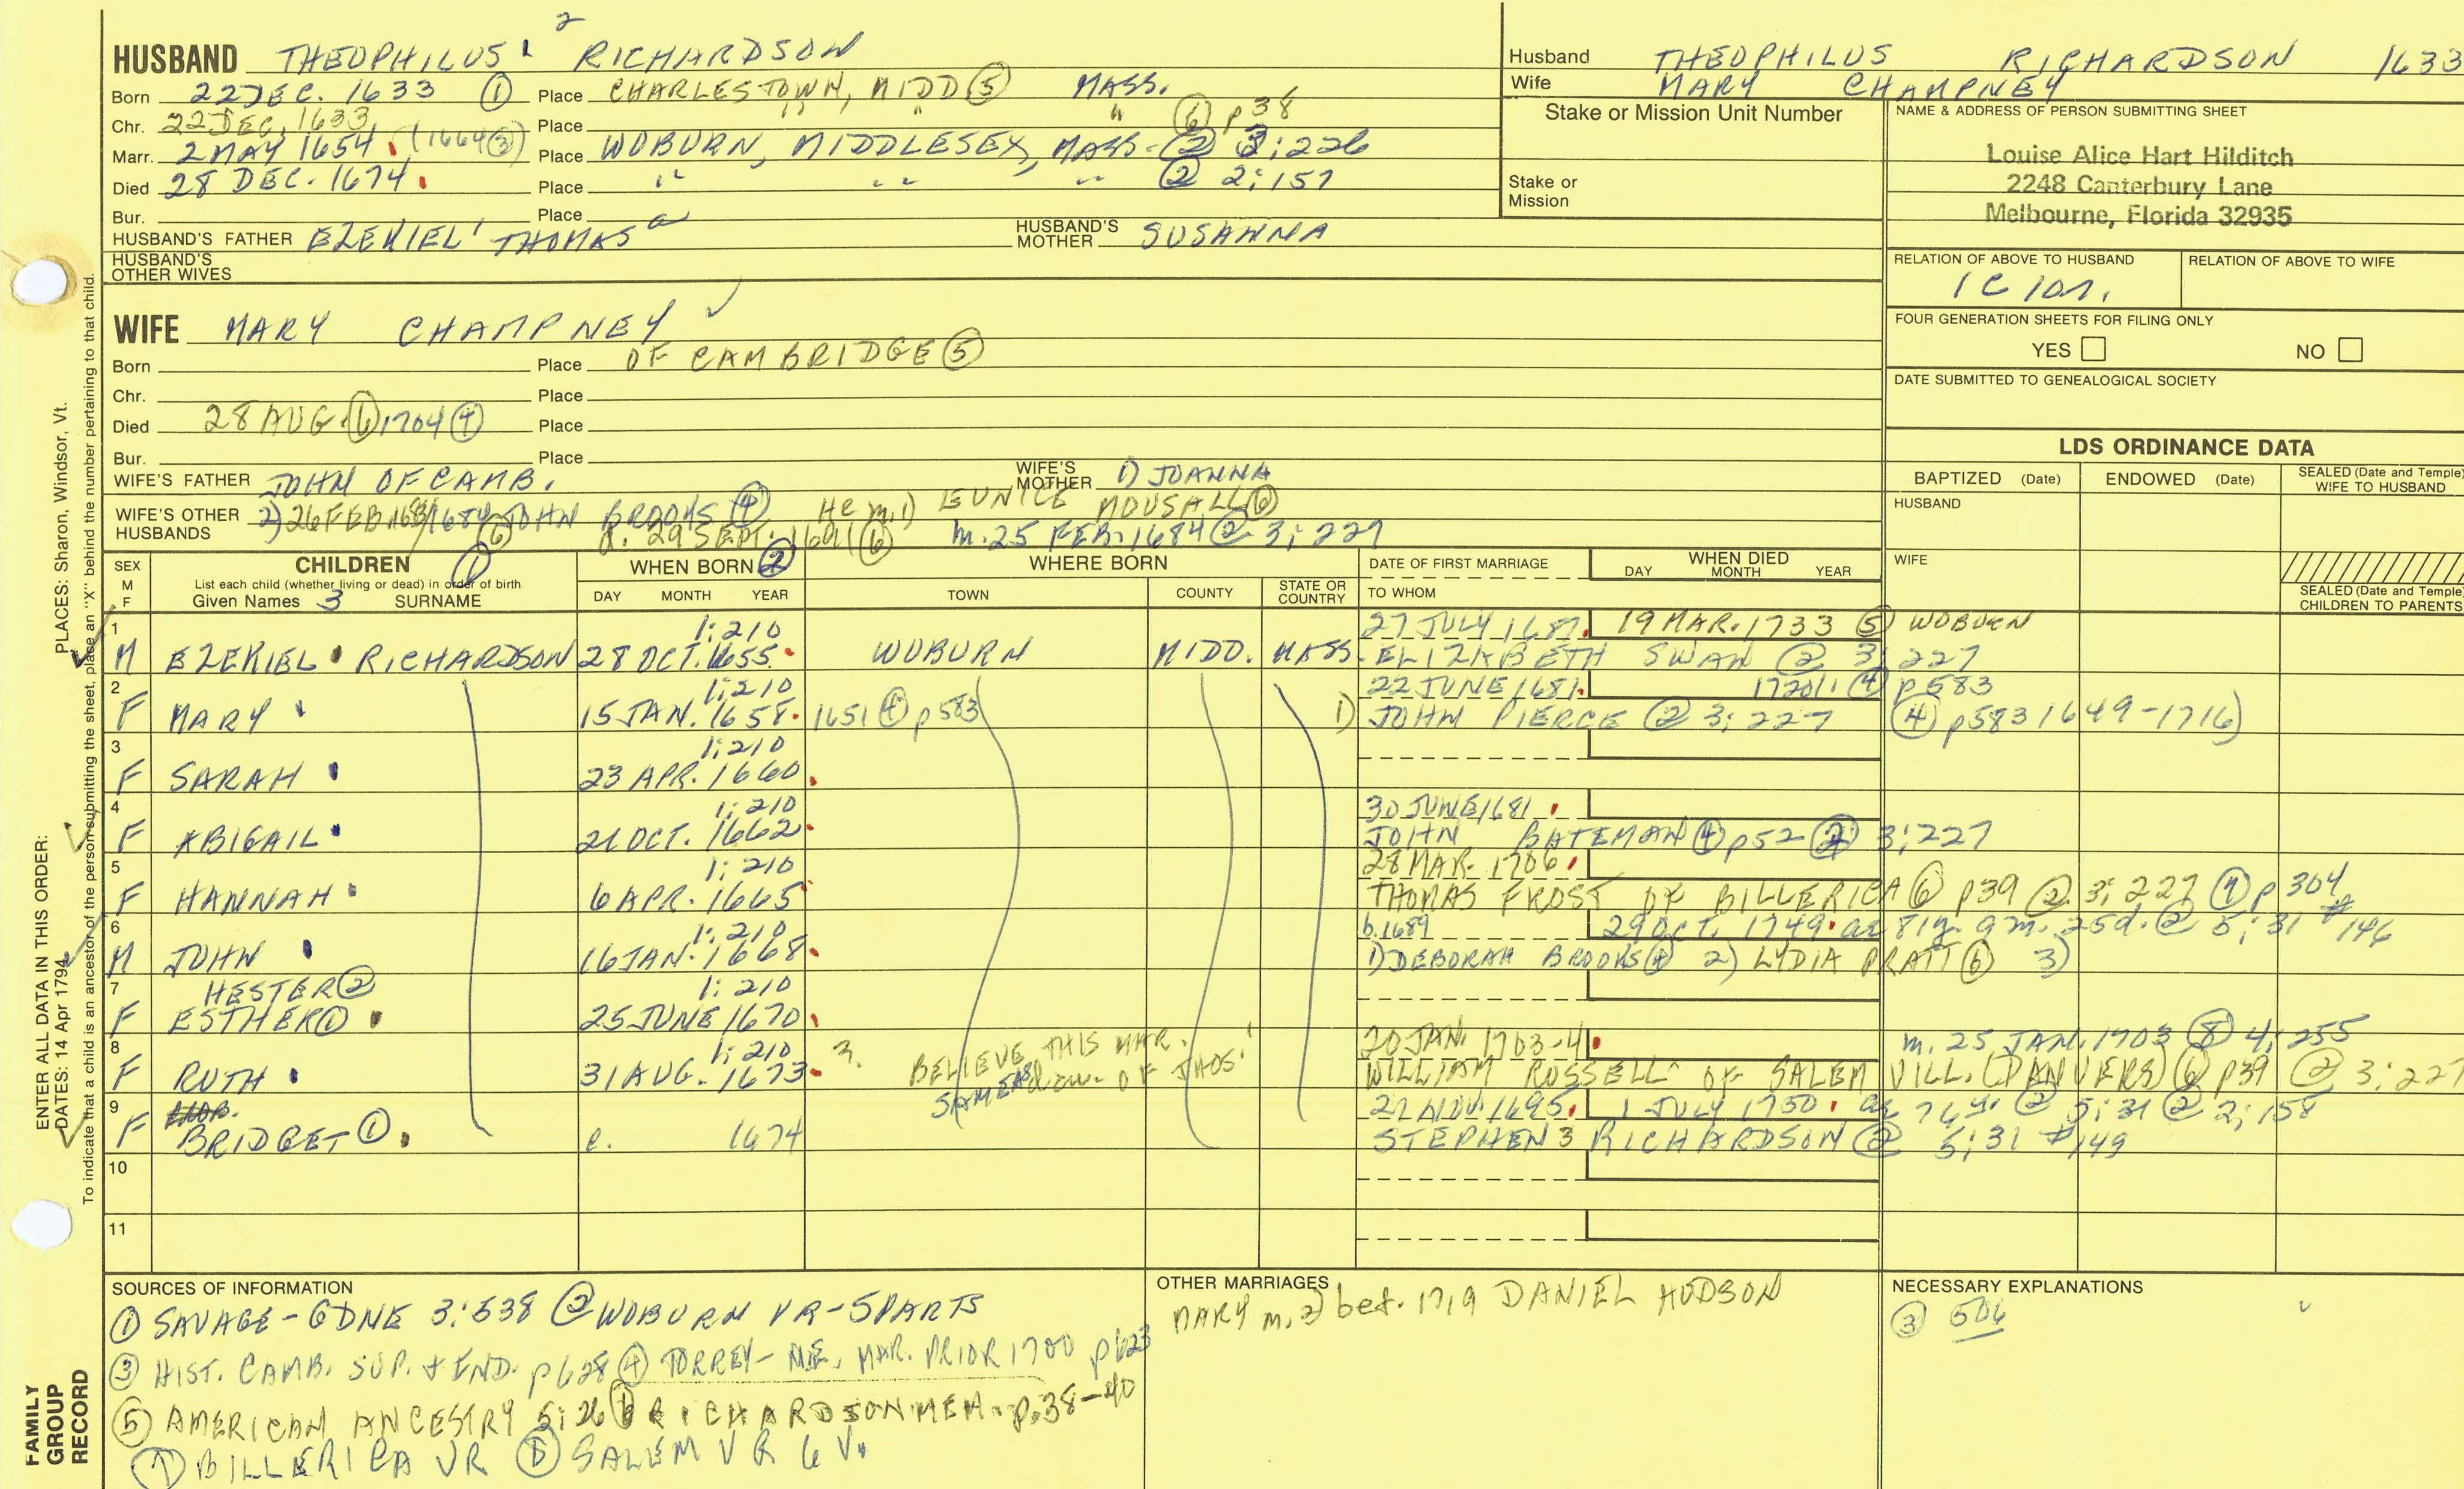 2
HUSBAND THEOPHILUS RICHARDSON
Born 22 DEC. 1633 ① Place CHARLESTOWN, MIDD ⑤ MASS.
Chr. 22 DEC. 1633 Place " " " ⑥ p38
Marr. 2 MAY 1654 (1664 ③) Place WOBURN, MIDDLESEX, MASS- ② 3:226
Died 28 DEC. 1674 Place " " " ② 2:157
Bur. Place
HUSBAND'S FATHER EZEKIEL' THOMAS HUSBAND'S MOTHER SUSANNA
HUSBAND'S OTHER WIVES
Husband THEOPHILUS RICHARDSON 1633
Wife MARY CHAMPNEY
Stake or Mission Unit Number
Stake or Mission
NAME & ADDRESS OF PERSON SUBMITTING SHEET
Louise Alice Hart Hilditch
2248 Canterbury Lane
Melbourne, Florida 32935
RELATION OF ABOVE TO HUSBAND RELATION OF ABOVE TO WIFE
1C 10r.
FOUR GENERATION SHEETS FOR FILING ONLY
YES NO
DATE SUBMITTED TO GENEALOGICAL SOCIETY
WIFE MARY CHAMPNEY
Born Place OF CAMBRIDGE ⑤
Chr. Place
Died 28 AUG. ⑥ 1704 ④ Place
Bur. Place
WIFE'S FATHER JOHN OF CAMB. WIFE'S MOTHER 1) JOANNA
WIFE'S OTHER HUSBANDS 2) 26 FEB 1683/1684 ⑥ JOHN BROOKS ④ He m. 1) EUNICE MOUSALL ⑥
d. 29 SEPT. 1691 ⑥ m. 25 FEB. 1684 ② 3:227
LDS ORDINANCE DATA
BAPTIZED (Date) ENDOWED (Date) SEALED (Date and Temple) WIFE TO HUSBAND
HUSBAND
WIFE
SEALED (Date and Temple) CHILDREN TO PARENTS
SEX M F CHILDREN ① WHEN BORN ② WHERE BORN DATE OF FIRST MARRIAGE WHEN DIED
List each child (whether living or dead) in order of birth
Given Names 3 SURNAME DAY MONTH YEAR TOWN COUNTY STATE OR COUNTRY TO WHOM DAY MONTH YEAR
1 1:210 27 JULY 1687 19 MAR. 1733 ⑤ WOBURN
M EZEKIEL RICHARDSON 28 OCT. 1655 WOBURN MIDD. MASS. ELIZABETH SWAN @ 3:227
2 1:210 22 JUNE 1681 1720/1 ④ p583
F MARY 15 JAN. 1658 1651 ④ p583 1) JOHN PIERCE ② 3:227 ④ p583 1649-1716)
3 1:210
F SARAH 23 APR. 1660
4 1:210 30 JUNE 1681
F ABIGAIL 21 OCT. 1662 JOHN BATEMAN ④ p52 ② 3:227
5 1:210 28 MAR. 1706
F HANNAH 6 APR. 1665 THOMAS FROST OF BILLERICA ⑥ p39 ② 3:227 p304
6 1:210 b.1689 29 OCT. 1749 ae 81y. 9m. 25d. ② 5:31 # 146
M JOHN 16 JAN. 1668 1) DEBORAH BROOKS ④ 2) LYDIA PRATT ⑥ 3)
7 HESTER ② 1:210
F ESTHER ① 25 JUNE 1670
8 1:210 3. BELIEVE THIS MAR. 20 JAN. 1703-4 m. 25 JAN. 1703 ⑧ 4:255
F RUTH 31 AUG. 1673 SAME AS dau. OF THOS' WILLIAM RUSSELL OF SALEM VILL. (DANVERS) ⑥ p39 ② 3:227
9 27 NOV. 1695 1 JULY 1750 ae 76y. ② 5:31 ② 2:158
F BRIDGET ① c. 1674 STEPHEN 3 RICHARDSON ② 5:31 #149
10
11
SOURCES OF INFORMATION
① SAVAGE-GDNE 3:538 ② WOBURN VR-5PARTS
③ HIST. CAMB. SUP. + IND. p628 ④ TORREY- N.E. MAR. PRIOR 1700 p623
⑤ AMERICAN ANCESTRY 5:26 ⑥ RICHARDSON MEM. p.38-40
⑦ BILLERICA VR ⑧ SALEM VR 6 V.
OTHER MARRIAGES
MARY m. 2) bef. 1719 DANIEL HUDSON
NECESSARY EXPLANATIONS
③ 506
PLACES: Sharon, Windsor, Vt.
ENTER ALL DATA IN THIS ORDER:
DATES: 14 Apr 1794
To indicate that a child is an ancestor of the person submitting the sheet, place an "X" behind the number pertaining to that child.
FAMILY GROUP RECORD